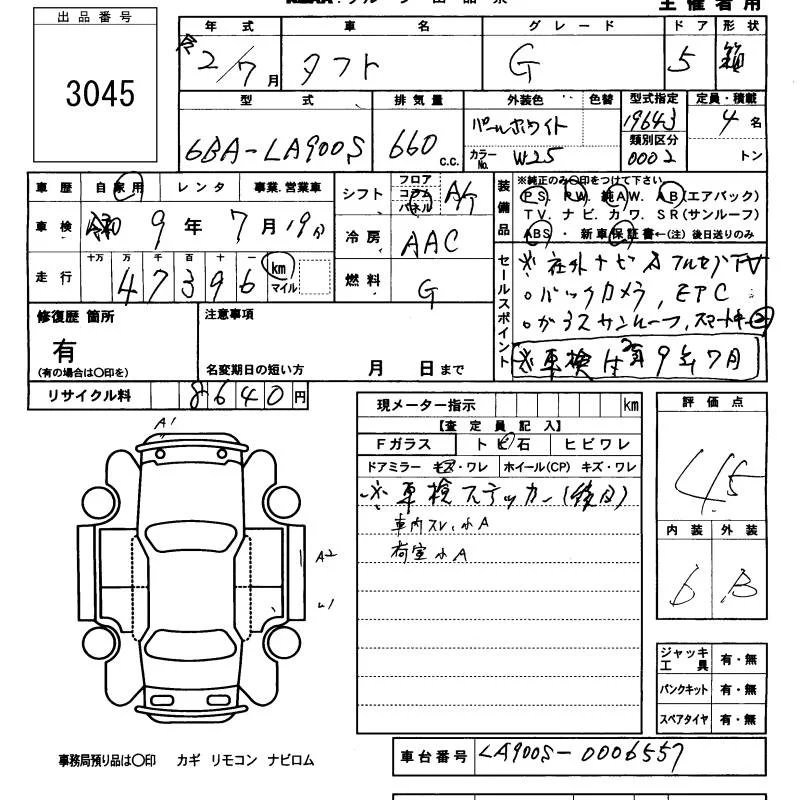 主催者用
出品番号
3045
年式 車名 グレード ドア 形状
令2/7月 タフト G 5 箱
型式 排気量 外装色 色替 型式指定 定員・積載
6BA-LA900S 660 c.c. パールホワイト 19643 4名
カラーNo. W25 類別区分 0002 トン
車歴 自家用 レンタ 事業.営業車
車検 令和 9年 7月 19日
走行 十万 万 千 百 十 km マイル
47396
シフト フロア コラム パネル A/T
冷房 AAC
燃料 G
装備品 ※純正のみ○印をつけて下さい
PS. PW. 純AW. AB(エアバック)
TV. ナビ. カワ. SR(サンルーフ)
ABS・ 新車保証書←(注) 後日送りのみ
セールスポイント
※ 社外ナビ フルセグTV
・バックカメラ, ETC
・ガラスサンルーフ, スマートキー②
※車検 9年7月
修復歴 箇所
有
(有の場合は○印を)
注意事項
名変期日の短い方 月 日まで
リサイクル料 8640円
現メーター指示 km
【査定員記入】
Fガラス トビ石 ヒビワレ
ドアミラー キズ・ワレ ホイール(CP) キズ・ワレ
※車検ステッカー(後日)
車内スレ、小A
荷室小A
評価点
4.5
内装 外装
B
A1
A2
ジャッキ工具 有・無
パンクキット 有・無
スペアタイヤ 有・無
事務局預り品は○印 カギ リモコン ナビロム
車台番号 LA900S-0006557